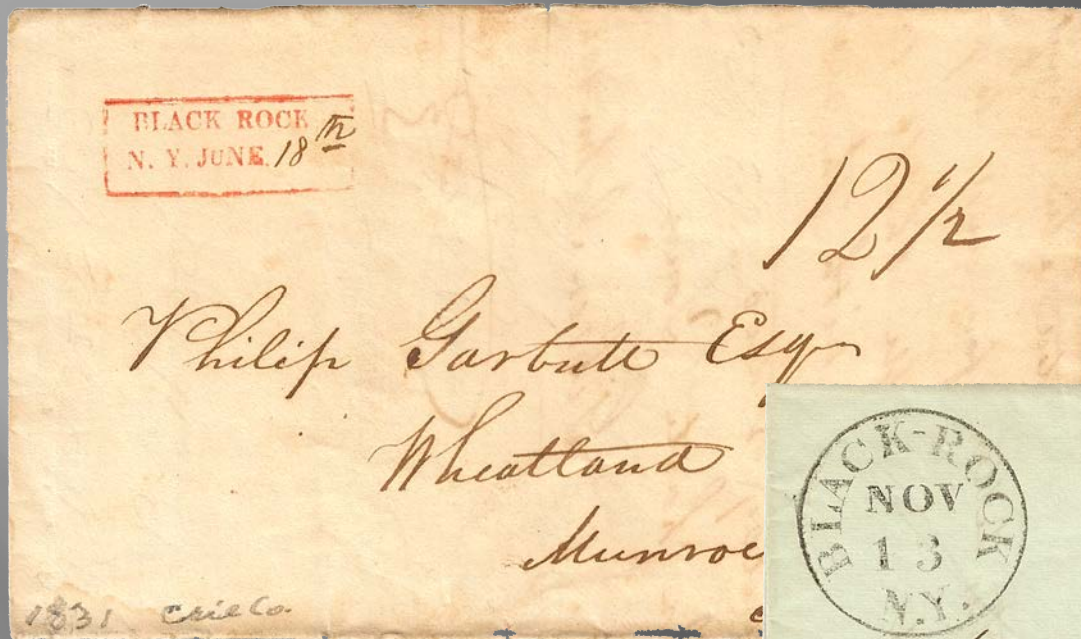 BLACK ROCK
N. Y. JUNE. 18th
12 1/2
Philip Garbutt Esq
Wheatland
Munroe
1831 Erie Co.
BLACK-ROCK
NOV
13
N.Y.